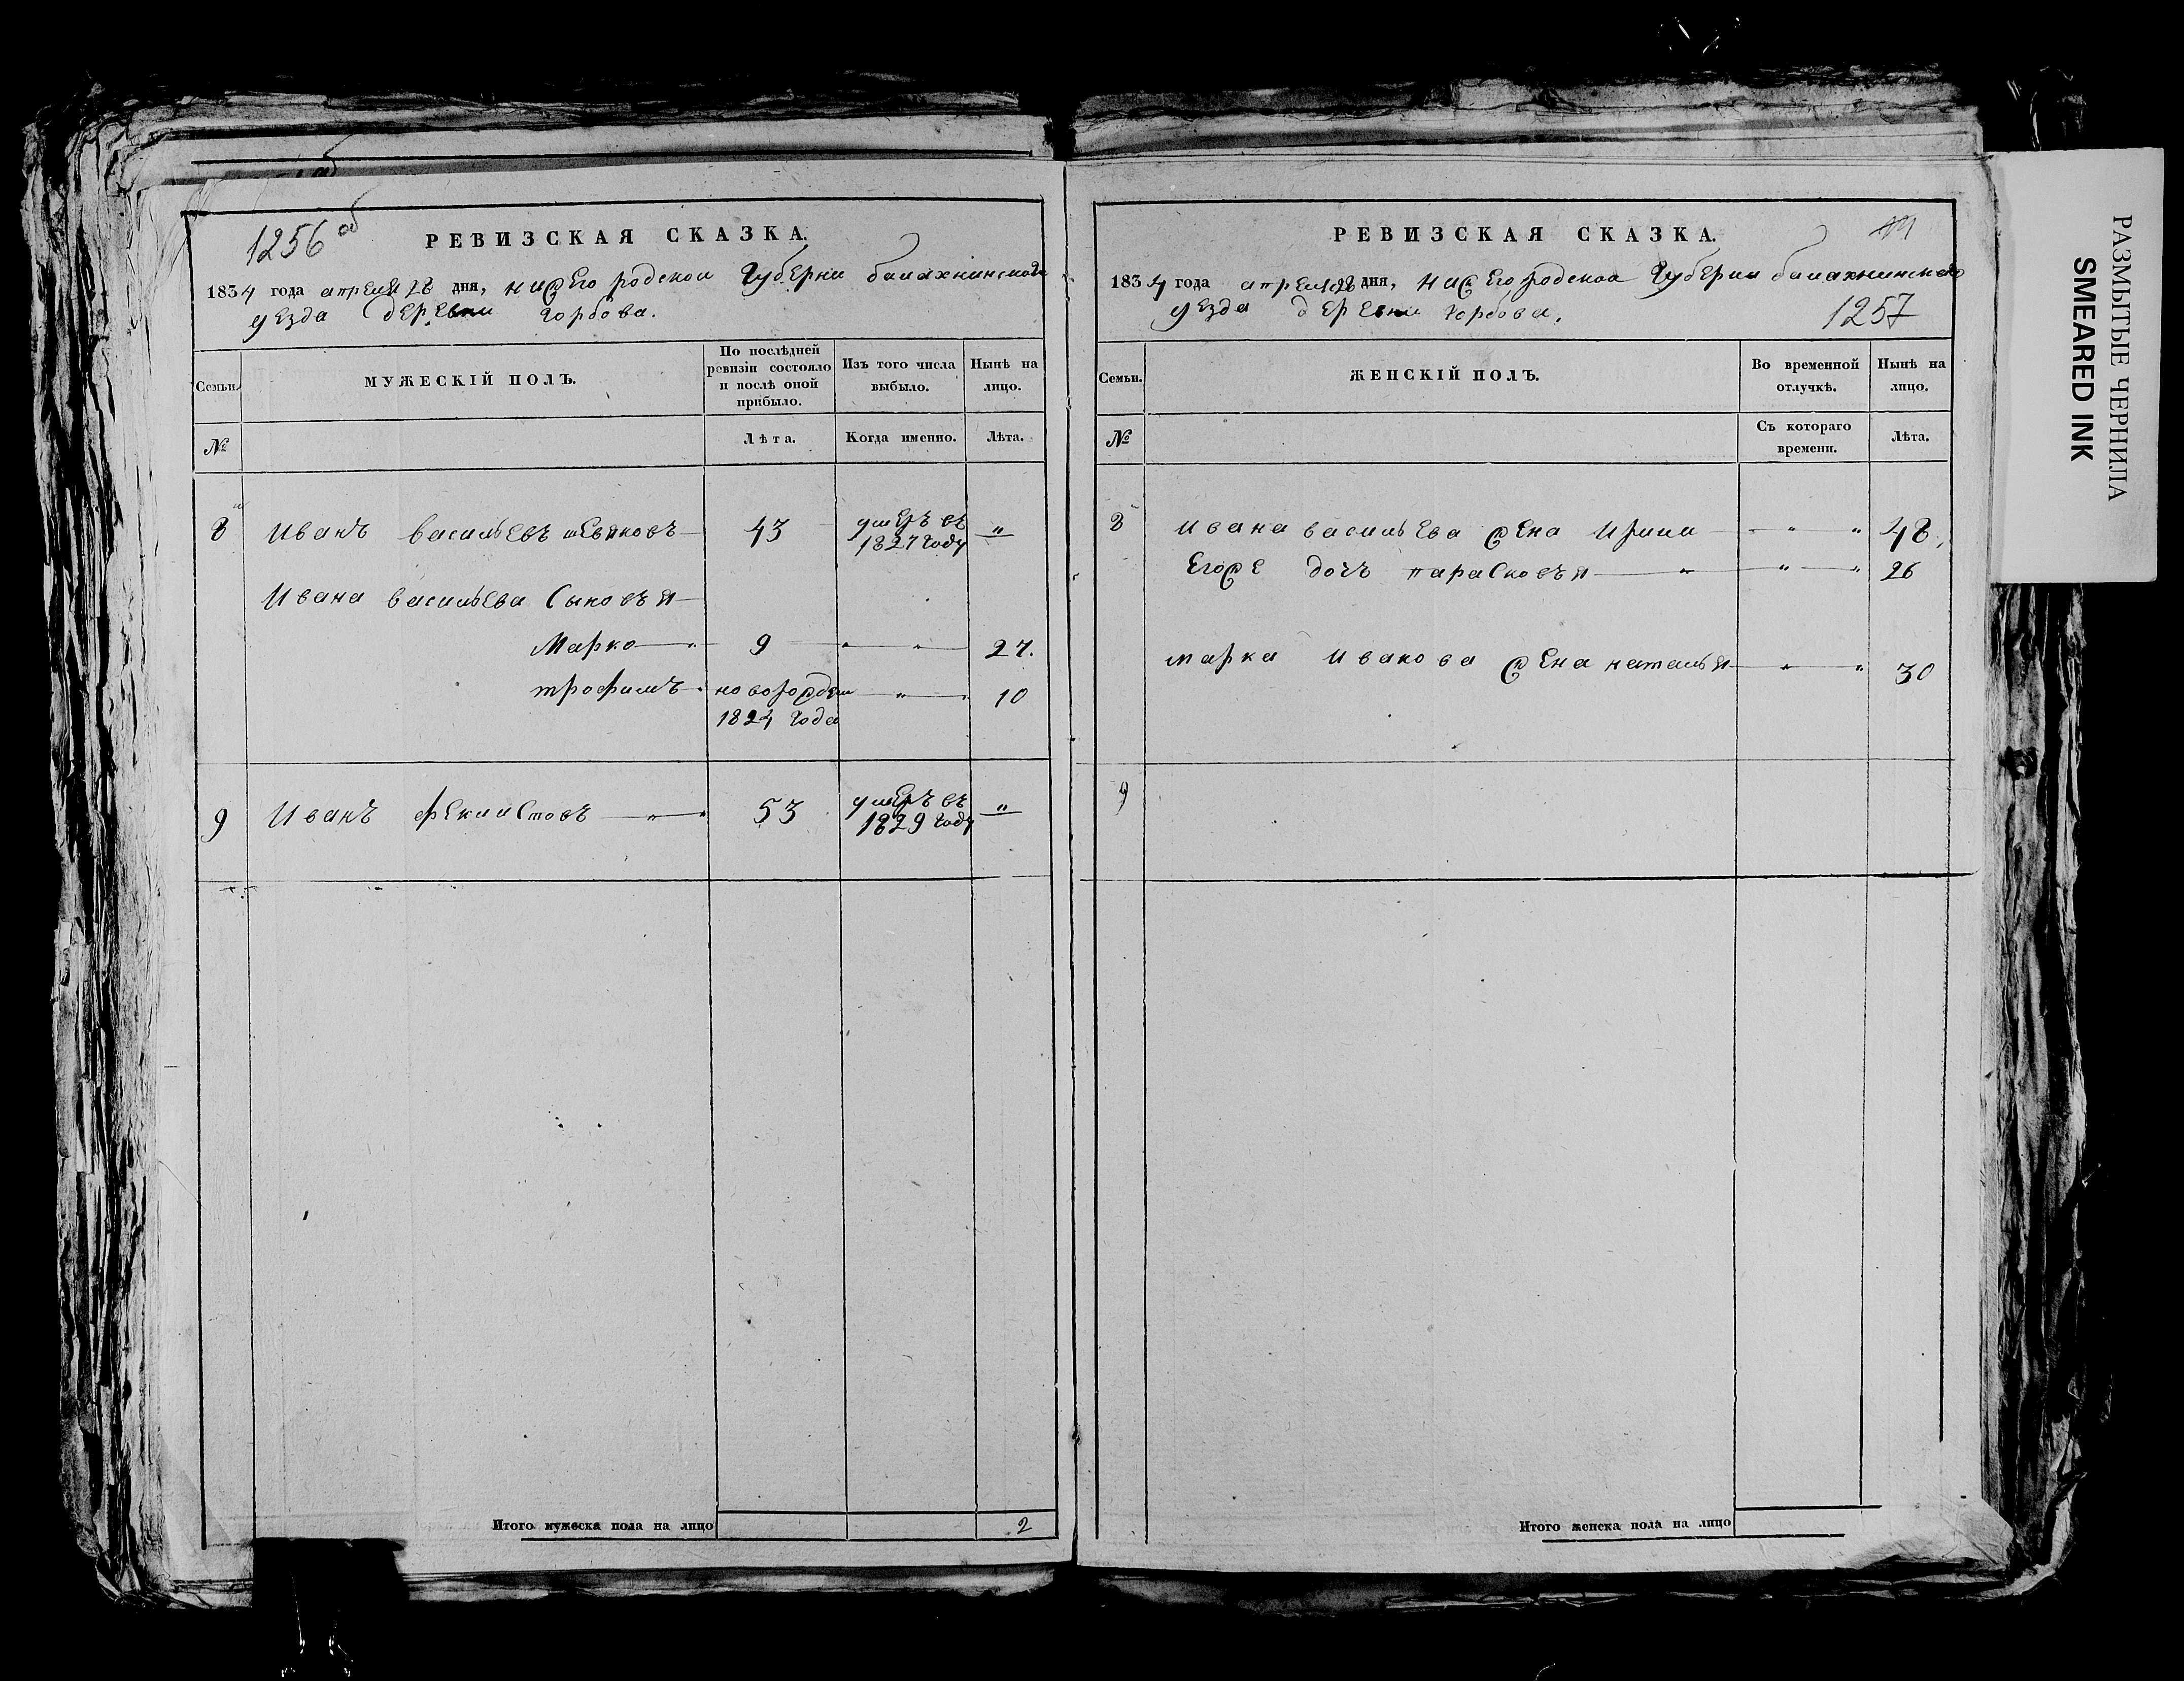 1256 об
РЕВИЗСКАЯ СКАЗКА.
1834 года апреля дня, нижегородской губерни балахнинскаго
уезда деревни Горбова.
Семьи.
МУЖЕСКІЙ ПОЛЪ.
По послѣдней ревизіи состояло и послѣ оной прибыло.
Изъ того числа выбыло.
Нынѣ на лицо.
№
Лѣта.
Когда именно.
Лѣта.
8 Иванъ васильевъ 43 умеръ въ 1827 году "
Ивана васильева сыновья
Марко " 9 " " 27.
трофимъ новорожден " 10
1824 года
9 Иванъ феклистовъ " 53 умеръ въ 1829 году "
Итого мужеска пола на лицо 2
РЕВИЗСКАЯ СКАЗКА.
1834 года апреля дня, нижегородской губерни балахнинскаго
уезда деревни Горбова.
1257
Семьи.
ЖЕНСКІЙ ПОЛЪ.
Во временной отлучкѣ.
Нынѣ на лицо.
№
Съ котораго времени.
Лѣта.
8 Ивана васильева жена Ирина " " 48
Егоже дочъ парасковъя " " " 26
марка Иванова жена наталья " " 30
9
Итого женска пола на лицо
РАЗМЫТЫЕ ЧЕРНИЛА
SMEARED INK